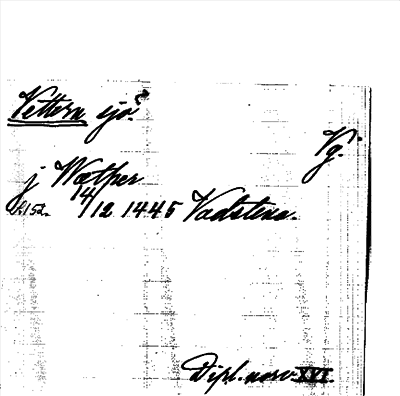 Vettern sjö.
Vg.
j Wætper
s. 152. 14/12 1445 Vadstena.
Dipl. norv. XVI.